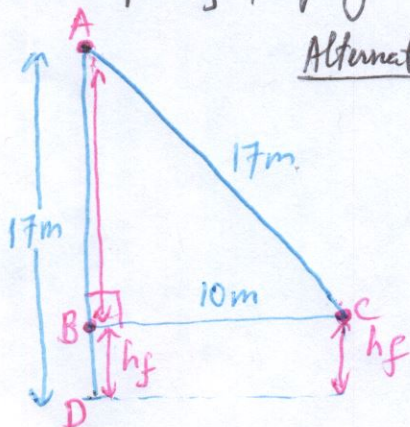 A
Alternat
17m
17m
10m
B
C
hf
hf
D